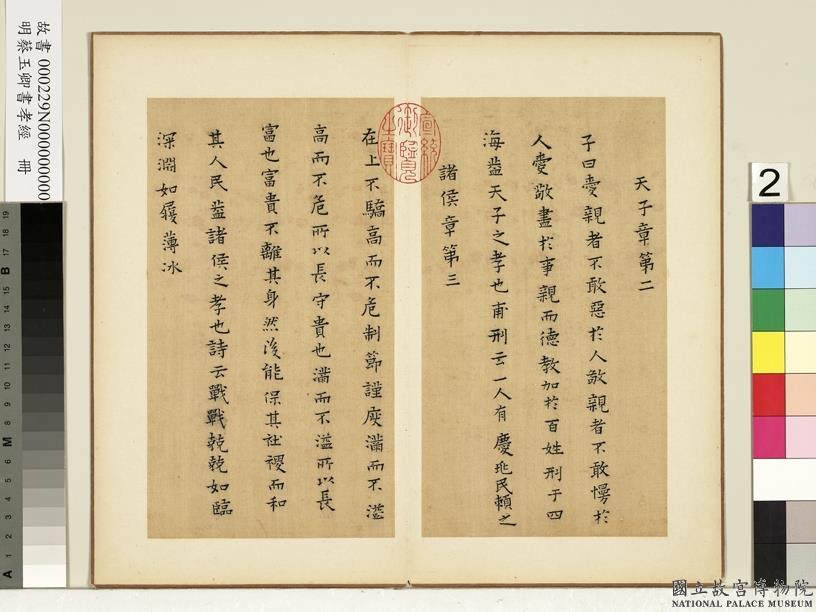 天子章第二
子曰愛親者不敢惡於人敬親者不敢慢於
人愛敬盡於事親而德教加於百姓刑于四
海蓋天子之孝也甫刑云一人有慶兆民賴之
諸侯章第三
在上不驕高而不危制節謹度滿而不溢
高而不危所以長守貴也滿而不溢所以長
富也富貴不離其身然後能保其社稷而和
其人民蓋諸侯之孝也詩云戰戰兢兢如臨
深淵如履薄冰
宣統御覽之寶
故書 000229N000000000
明蔡玉卿書孝經 冊
2
19
18
17
16
15
B
12
11
10
9
8
M
6
5
4
3
2
1
A
國立故宮博物院
NATIONAL PALACE MUSEUM